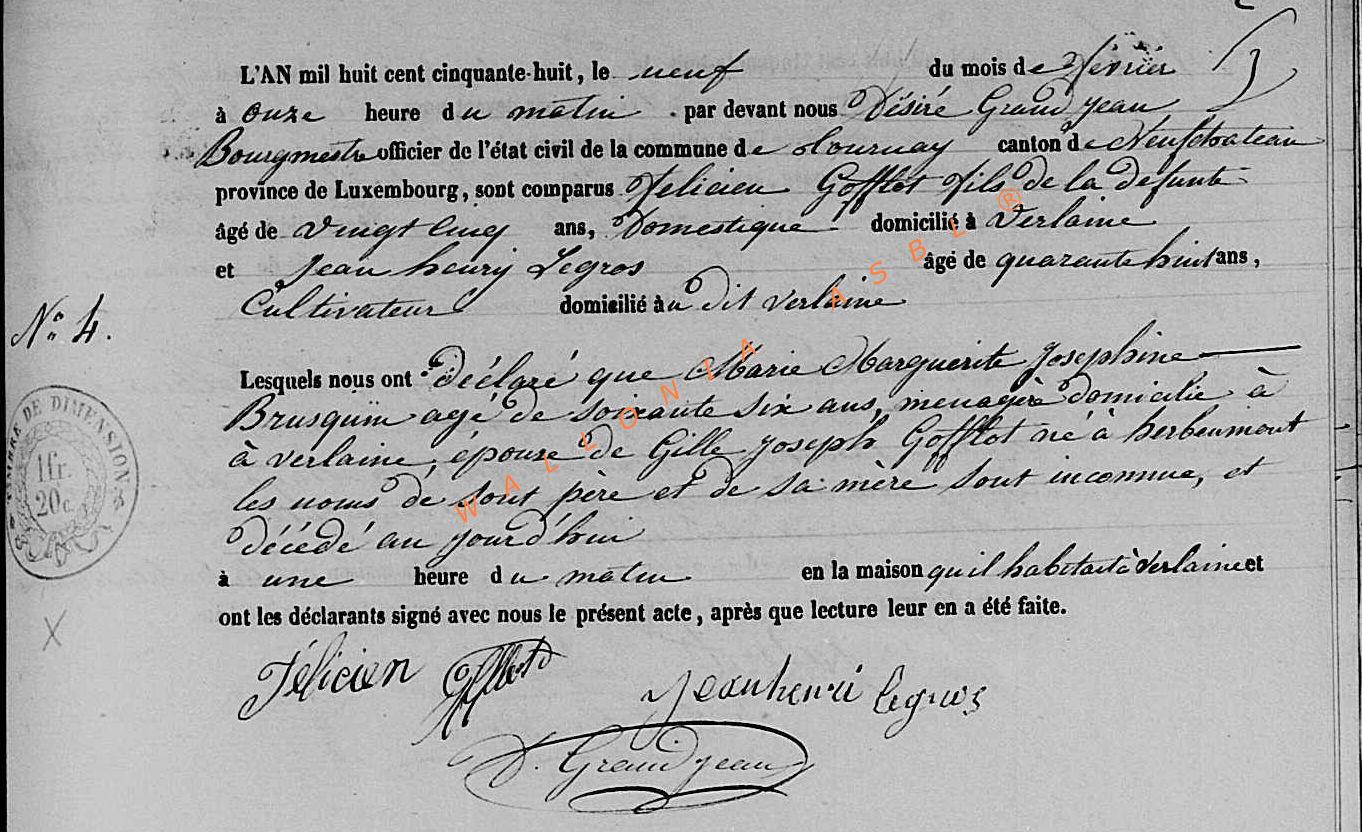 L'AN mil huit cent cinquante-huit, le neuf du mois de février
à onze heure du matin par devant nous Désiré Grand jean
Bourgmestre officier de l'état civil de la commune de Tournay canton de Neufchateau
province de Luxembourg, sont comparus Felicien Gofflot fils de la defunte
âgé de vingt cinq ans, Domestique domicilié à Verlaine
et Jean henry Legros âgé de quarante huit ans,
Cultivateur domicilié à u dit verlaine
N° 4.
Lesquels nous ont déclaré que Marie Marguerite Josephine
Brusquin agé de soixante six ans, menagère domicilié à
à verlaine, épouse de Gille Joseph Gofflot né à herbeumont
les noms de sont père et de sa mère sont inconnue, et
décédé au jourd'hui
à une heure du matin en la maison qu'il habitait à Verlaine et
ont les déclarants signé avec nous le présent acte, après que lecture leur en a été faite.
TIMBRE DE DIMENSION
1 fr.
20 c.
X
Félicien Gofflot
Jean henri legros
D. Grand jean
WALLONIA ASBL ®